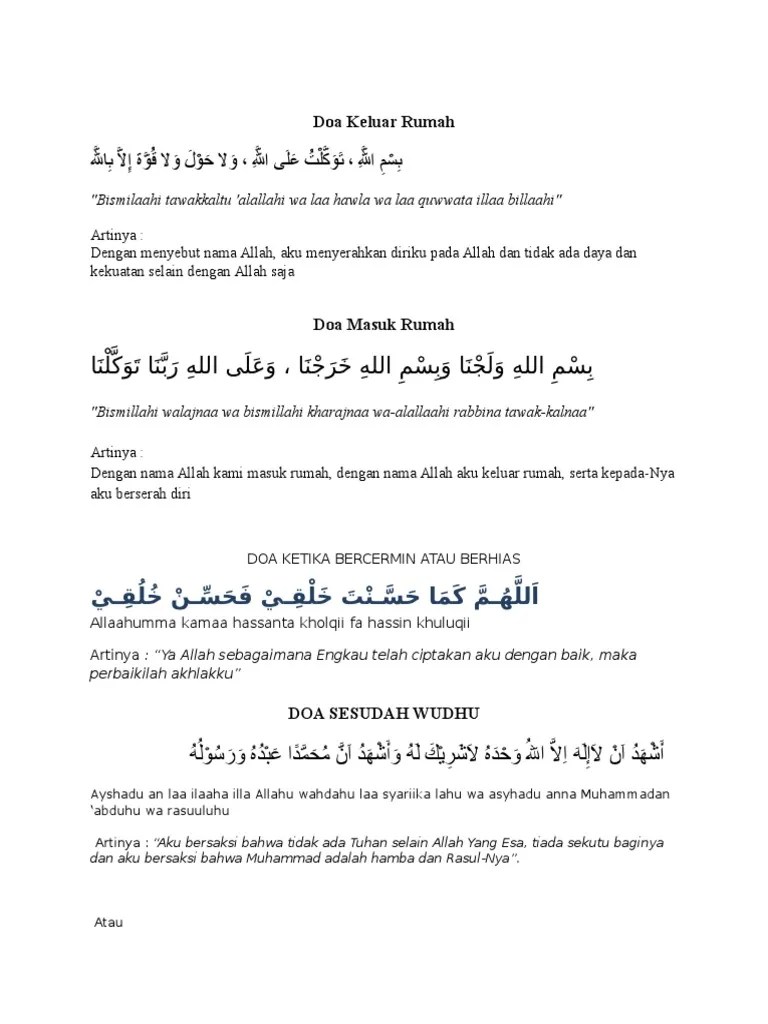 Doa Keluar Rumah
بِسْمِ اللَّهِ ، تَوَكَّلْتُ عَلَى اللَّهِ ، وَلا حَوْلَ وَلا قُوَّةَ إِلاَّ بِاللَّهِ
"Bismilaahi tawakkaltu 'alallahi wa laa hawla wa laa quwwata illaa billaahi"
Artinya :
Dengan menyebut nama Allah, aku menyerahkan diriku pada Allah dan tidak ada daya dan
kekuatan selain dengan Allah saja
Doa Masuk Rumah
بِسْمِ اللهِ وَلَجْنَا وَبِسْمِ اللهِ خَرَجْنَا ، وَعَلَى اللهِ رَبَّنَا تَوَكَّلْنَا
"Bismillahi walajnaa wa bismillahi kharajnaa wa-alallaahi rabbina tawak-kalnaa"
Artinya :
Dengan nama Allah kami masuk rumah, dengan nama Allah aku keluar rumah, serta kepada-Nya
aku berserah diri
DOA KETIKA BERCERMIN ATAU BERHIAS
اَللَّهُـمَّ كَمَا حَسَّـنْتَ خَلْقِـيْ فَحَسِّـنْ خُلُقِـيْ
Allaahumma kamaa hassanta kholqii fa hassin khuluqii
Artinya : “Ya Allah sebagaimana Engkau telah ciptakan aku dengan baik, maka
perbaikilah akhlakku”
DOA SESUDAH WUDHU
أَشْهَدُ اَنْ لاَإِلَهَ اِلاَّ اللهُ وَحْدَهُ لاَشَرِيْكَ لَهُ وَأَشْهَدُ اَنَّ مُحَمَّدًا عَبْدُهُ وَرَسُوْلُهُ
Ayshadu an laa ilaaha illa Allahu wahdahu laa syariika lahu wa asyhadu anna Muhammadan
‘abduhu wa rasuuluhu
Artinya : “Aku bersaksi bahwa tidak ada Tuhan selain Allah Yang Esa, tiada sekutu baginya
dan aku bersaksi bahwa Muhammad adalah hamba dan Rasul-Nya”.
Atau